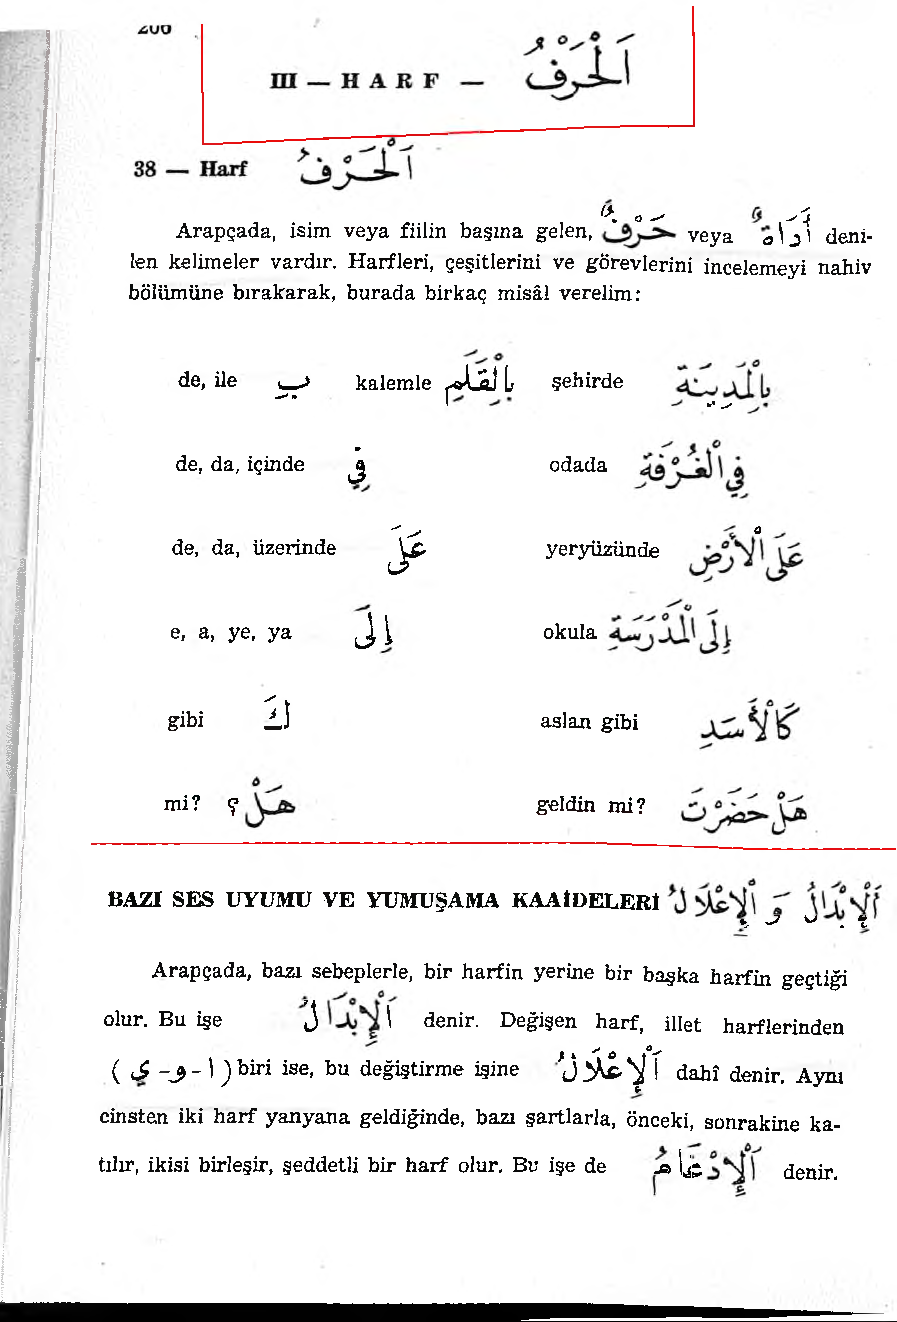 III — H A R F — اَلْحَرْفُ
38 — Harf اَلْحَرْفُ
Arapçada, isim veya fiilin başına gelen, حَرْفٌ veya أَدَاةٌ deni-
len kelimeler vardır. Harfleri, çeşitlerini ve görevlerini incelemeyi nahiv
bölümüne bırakarak, burada birkaç misâl verelim:
de, ile بِ kalemle بِالْقَلَمِ şehirde بِالْمَدِينَةِ
de, da, içinde فِي odada فِي الْغُرْفَةِ
de, da, üzerinde عَلَى yeryüzünde عَلَى الْأَرْضِ
e, a, ye, ya إِلَى okula إِلَى الْمَدْرَسَةِ
gibi كَ aslan gibi كَالْأَسَدِ
mi? هَلْ ؟ geldin mi? هَلْ حَضَرْتَ
BAZI SES UYUMU VE YUMUŞAMA KAAİDELERİ اَلْإِبْدَالُ وَ الْإِعْلَالُ
Arapçada, bazı sebeplerle, bir harfin yerine bir başka harfin geçtiği
olur. Bu işe اَلْإِبْدَالُ denir. Değişen harf, illet harflerinden
( ا - و - ي ) biri ise, bu değiştirme işine اَلْإِعْلَالُ dahî denir. Aynı
cinsten iki harf yanyana geldiğinde, bazı şartlarla, önceki, sonrakine ka-
tılır, ikisi birleşir, şeddetli bir harf olur. Bu işe de اَلْإِدْغَامُ denir.